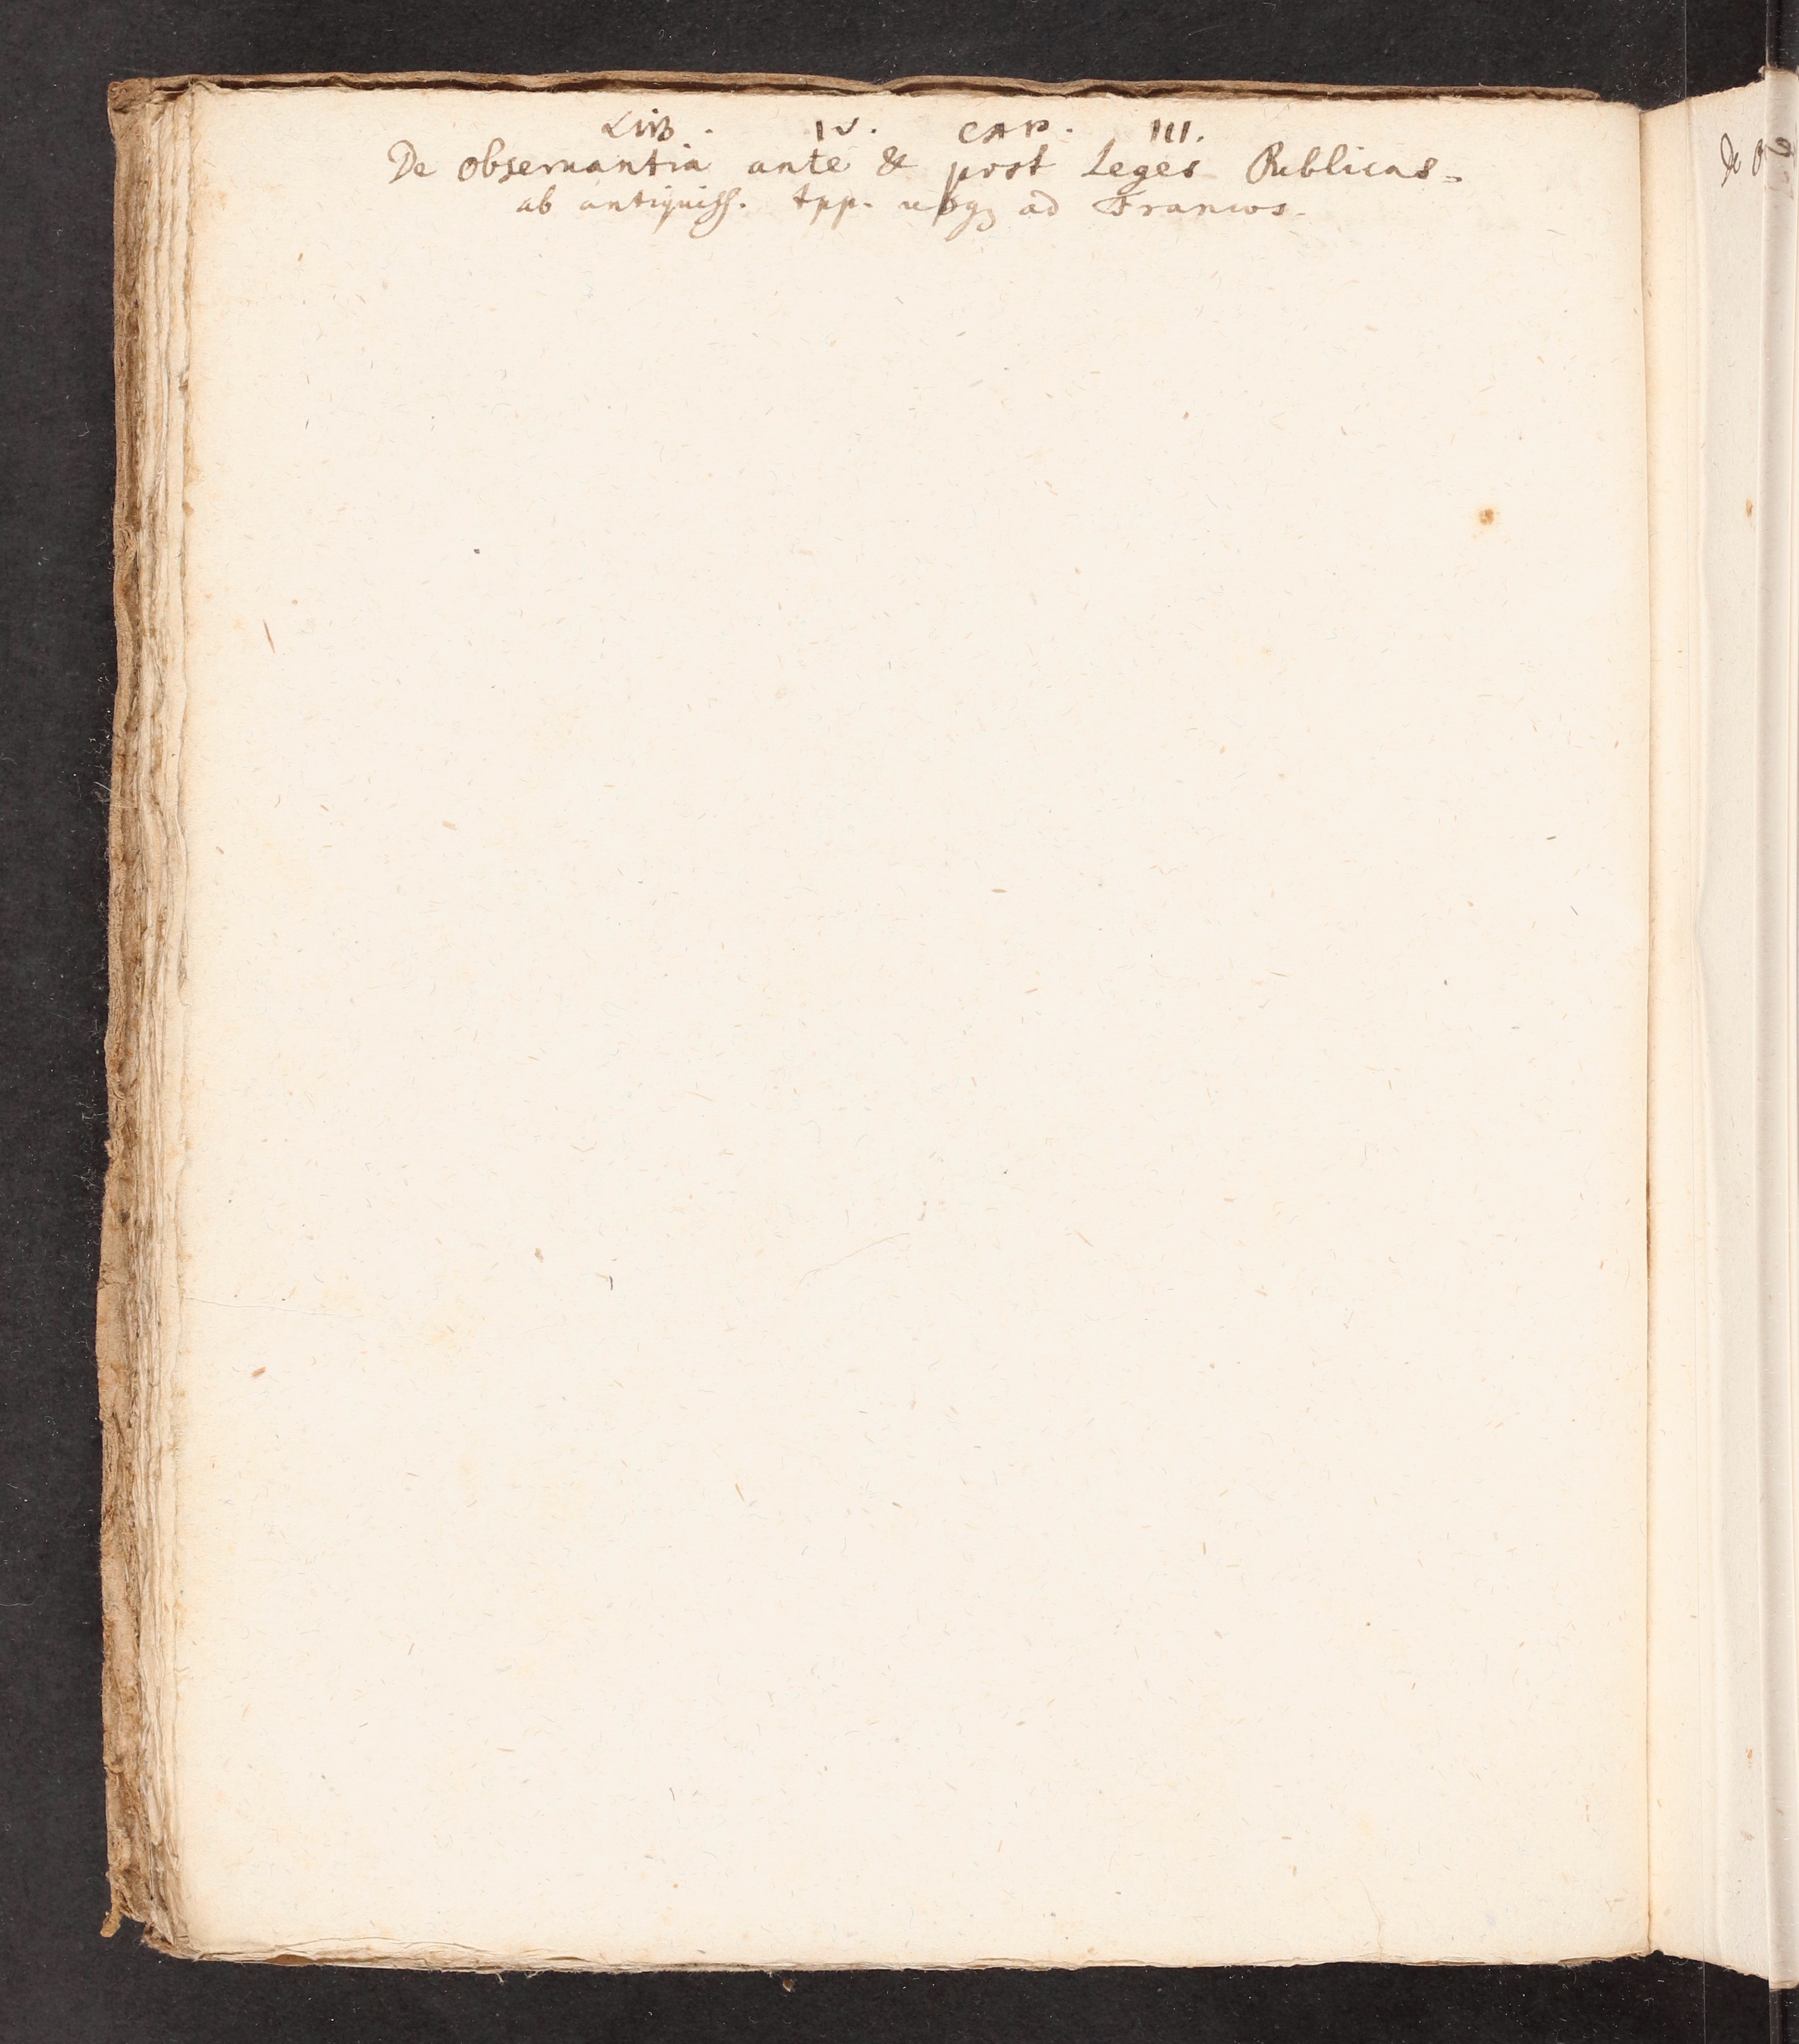 LIB. IV. CAP. III.
De observantia ante & post Leges Publicas
ab antiquiss. tpp. usqꝫ ad Francos.